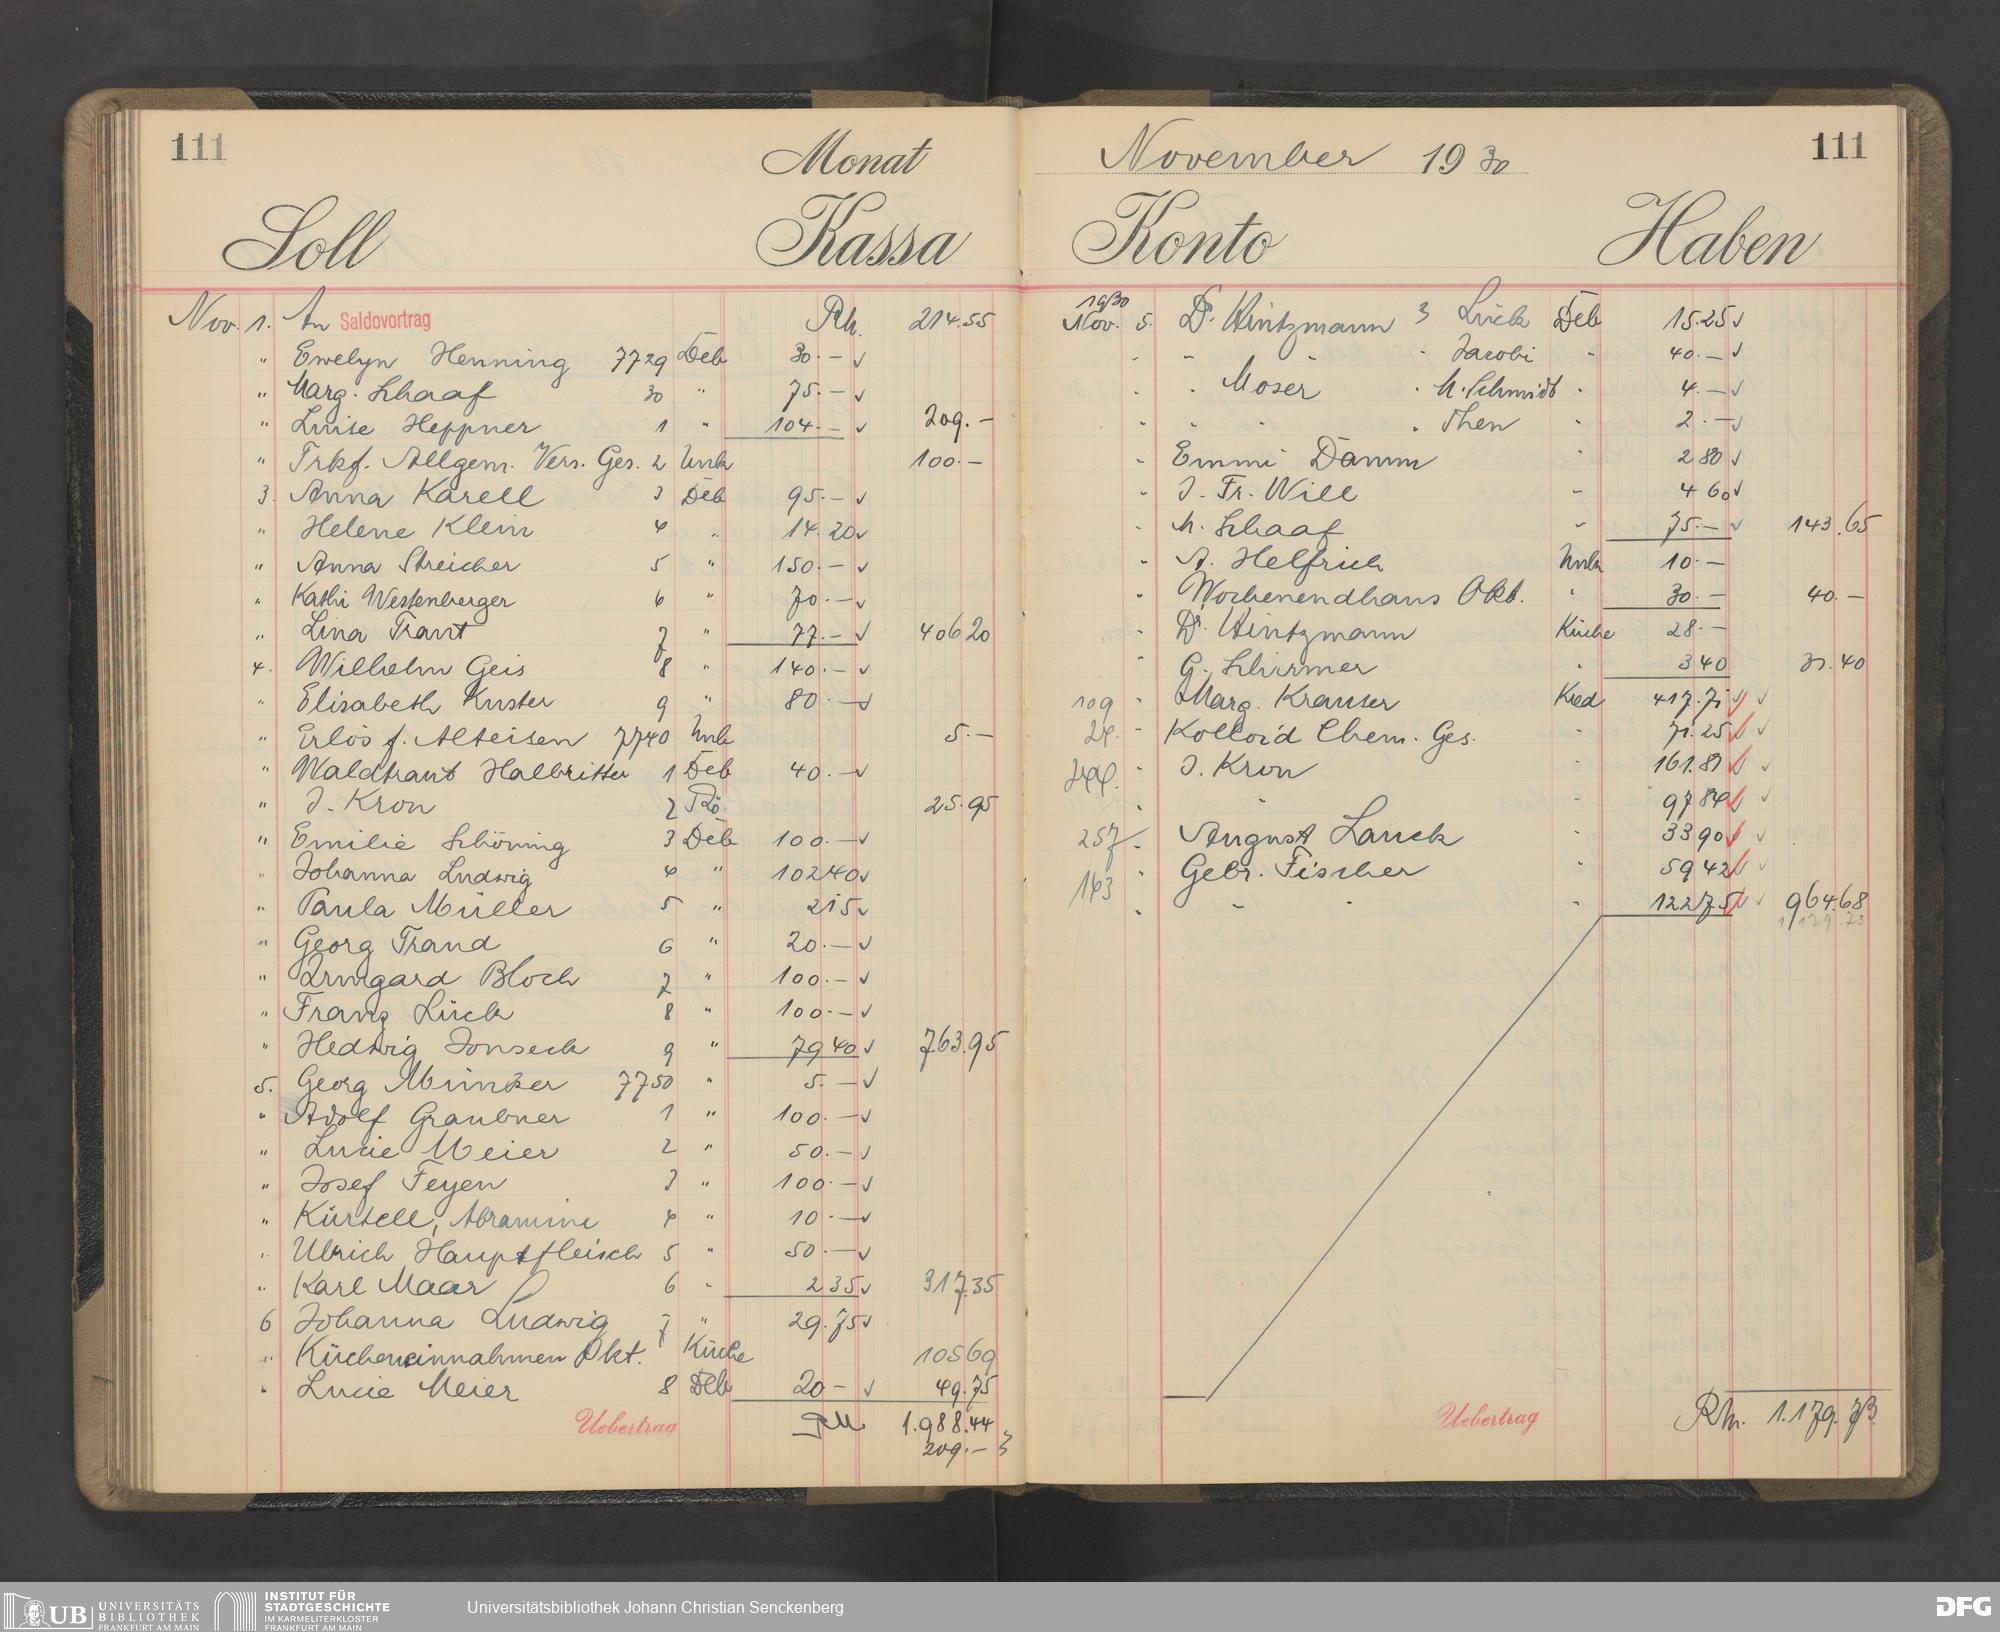 111
Monat
Soll Kassa
Nov. 1. An Saldovortrag Rh. 214.55
" Ewelyn Henning 7729 Deb 30.–
" Marg. Schaaf 30 " 75.–
" Luise Heppner 1 " 104.– 209.–
" Frkf. Allgem. Vers. Ges. 2 Unk 100.–
3. Anna Karell 3 Deb 95.–
" Helene Klein 4 " 14.20
" Anna Streicher 5 " 150.–
" Kathi Westenberger 6 " 70.–
" Lina Trant 7 " 77.– 406 20
4. Wilhelm Geis 8 " 140.–
" Elisabeth Kuster 9 " 80.–
" Erlös f. Alteisen 7740 Unk 5.–
" Waldtraut Halbritter 1 Deb 40.–
" J. Kron 2 Rö 25.95
" Emilie Schöning 3 Deb 100.–
" Johanna Ludwig 4 " 102 40
" Paula Müller 5 " 2 15
" Georg Trand 6 " 20.–
" Irmgard Bloch 7 " 100.–
" Franz Lück 8 " 100.–
" Hedwig Jonseck 9 " 79 40 763.95
5. Georg Münker 7750 " 5.–
" Adolf Graubner 1 " 100.–
" Lucie Meier 2 " 50.–
" Josef Feyen 3 " 100.–
" Kürtell, Abramine 4 " 10.–
" Ulrich Hauptfleisch 5 " 50.–
" Karl Maar 6 " 2 35 317.35
6 Johanna Ludwig 7 " 29.75
" Kücheneinnahmen Okt. Küche 105 69
" Lucie Meier 8 Deb 20– 49.75
Uebertrag RM 1.988.44
209.–
November 1930 111
Konto Haben
1930
Nov. 5. Dr. Hintzmann Lück Deb 15.25
" " " " Jacobi " 40.–
" " Moser " M. Schmidt " 4.–
" " " " Then " 2.–
" Emmi Damm " 2 80
" J. Fr. Will " 4 60
" M. Schaaf " 75.– 143.65
" A. Helfrich Unk 10.–
" Wochenendhaus Okt. " 30.– 40.–
" Dr. Hintzmann Küche 28.–
" G. Schirmer " 3 40 31.40
109 " Marg. Krauser Kred 417.71
24. " Kolloid Chem. Ges. " 71.25
" J. Kron " 161.81
" " " 97 84
257 " August Lauck " 33 90
143 " Gebr. Fischer " 59 42
" " " " 122 75 964.68
1179.73
Uebertrag Rm. 1.179.73
UB UNIVERSITÄTS BIBLIOTHEK FRANKFURT AM MAIN
INSTITUT FÜR STADTGESCHICHTE IM KARMELITERKLOSTER FRANKFURT AM MAIN
Universitätsbibliothek Johann Christian Senckenberg
DFG